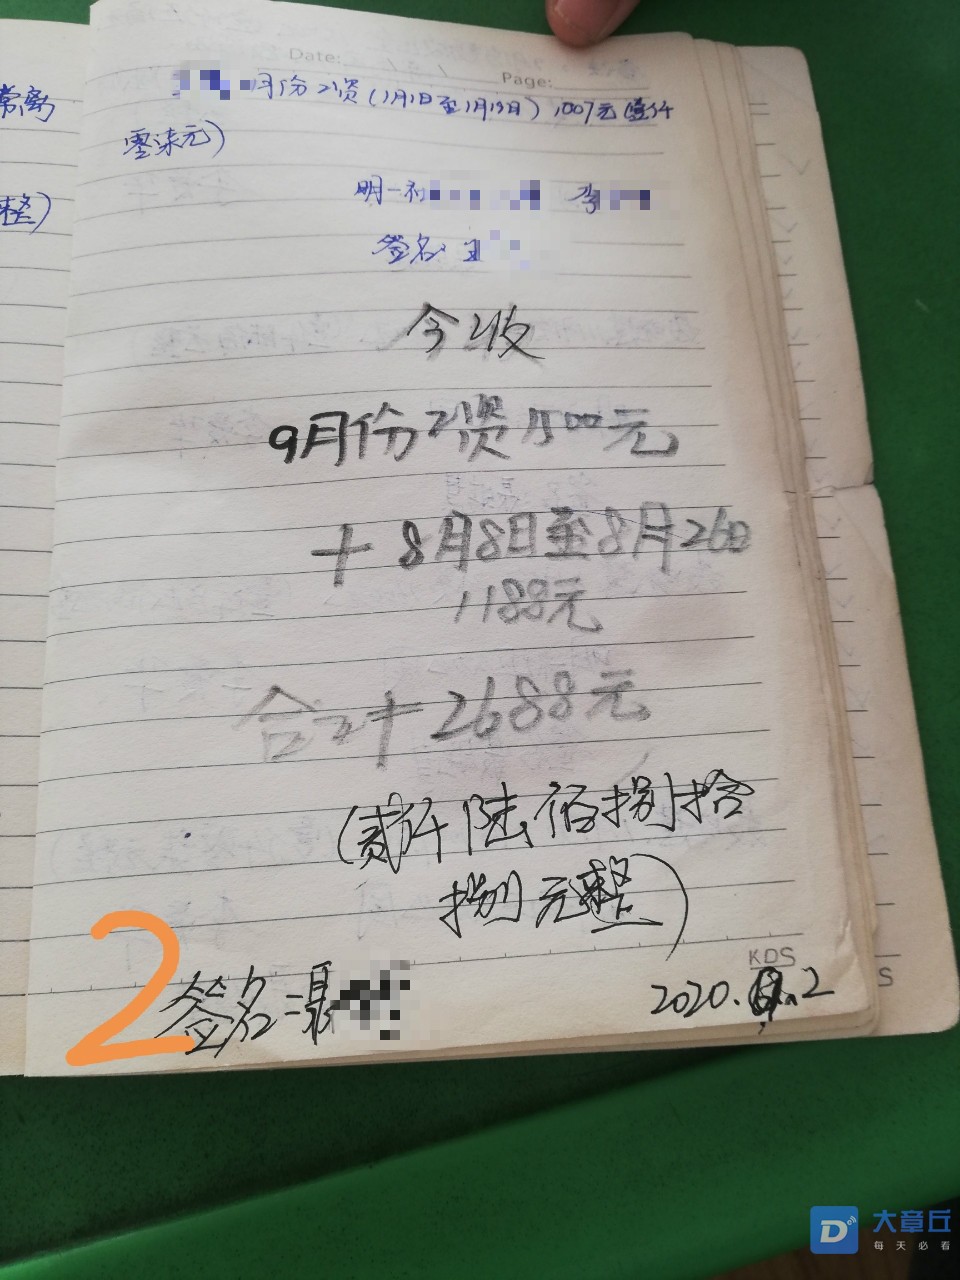 常离
整)
Date:
Page:
月份工资(1月1日至1月19日)1007元(壹仟
零柒元)
明一初
李
签名:王
今收
9月份工资1500元
+8月8日至8月26日
1188元
合计2688元
(贰仟陆佰捌拾
捌元整)
签名:聂
2020. .2
KDS
S
2
大章丘
每天必看